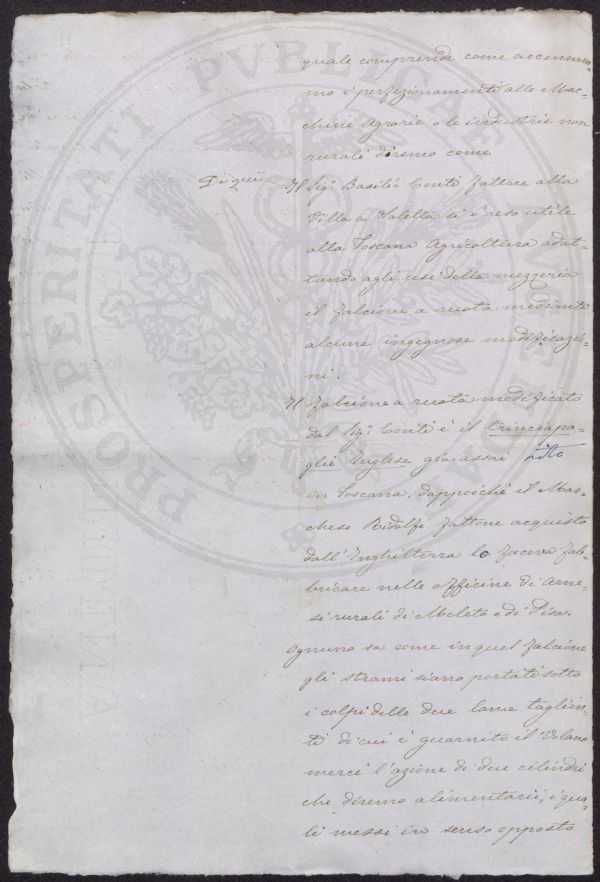 PROSPERITATI PVBLICAE AVGENDAE
quale comprende come accennam-
mo i perfezionamenti alle Mac-
chine Agrarie o le industrie non
rurali diremo come
Di qui
Il Sig.r Basilio Conti fattore alla
Villa a Saletta si è reso utile
alla Toscana Agricoltura adat-
tando agli usi della mezzeria
il falcione a ruota mediante
alcune ingegnose modificazio-
ni.
Il falcione a ruota modificato
dal Sig.r Conti è il trinciapa-
glie Inglese già assai noto
in Toscana, dappoiché il Mar-
chese Ridolfi fattone acquisto
dall'Inghilterra lo faceva fab-
bricare nelle officine di Arne-
si rurali di Meleto e di Pisa.
Ognuno sa come in quel falcione
gli strami siano portati sotto
i colpi delle due lame taglien-
ti di cui è guarnito il Volano
mercè l'azione di due cilindri
che diremo alimentarii, i qua-
li messi in senso opposto